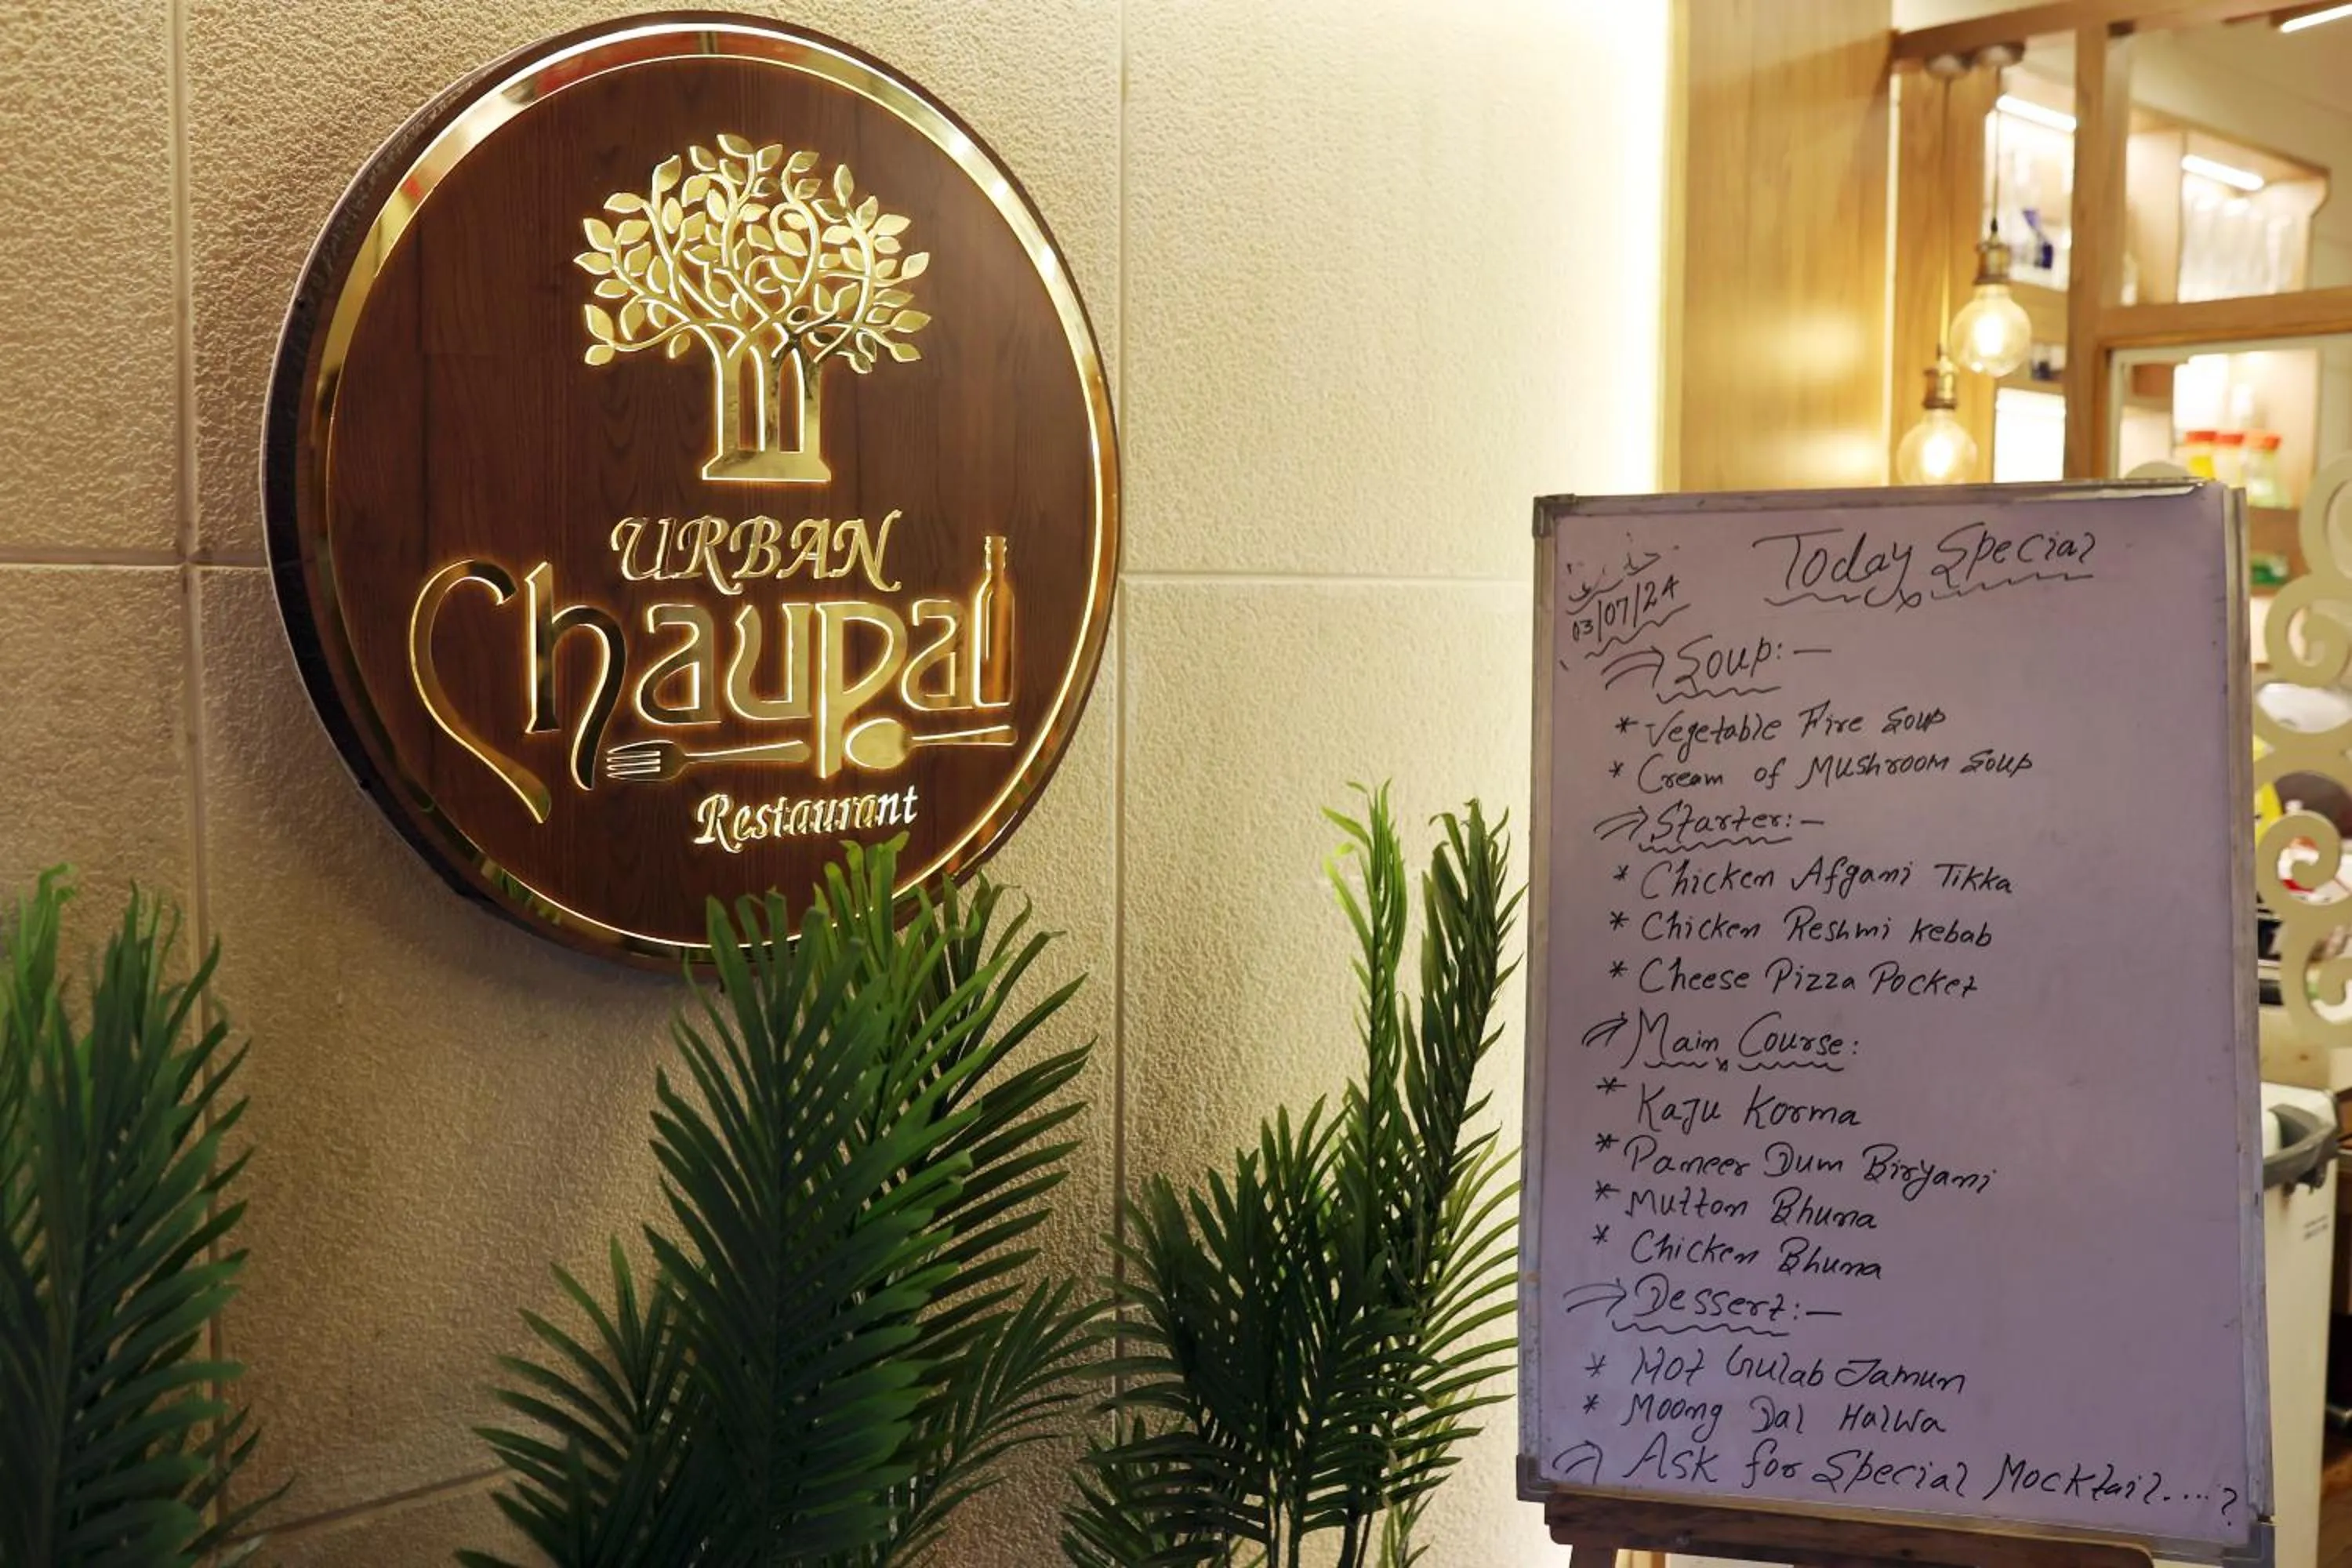 URBAN
Chaupal
Restaurant
Today Special
03/07/24
Soup:-
* Vegetable Fire Soup
* Cream of Mushroom Soup
Starter:-
* Chicken Afgani Tikka
* Chicken Reshmi Kebab
* Cheese Pizza Pocket
Main Course:
* Kaju Korma
* Paneer Dum Biryani
* Mutton Bhuna
* Chicken Bhuna
Dessert:-
* Hot Gulab Jamun
* Moong Dal Halwa
Ask for Special Mocktail....?